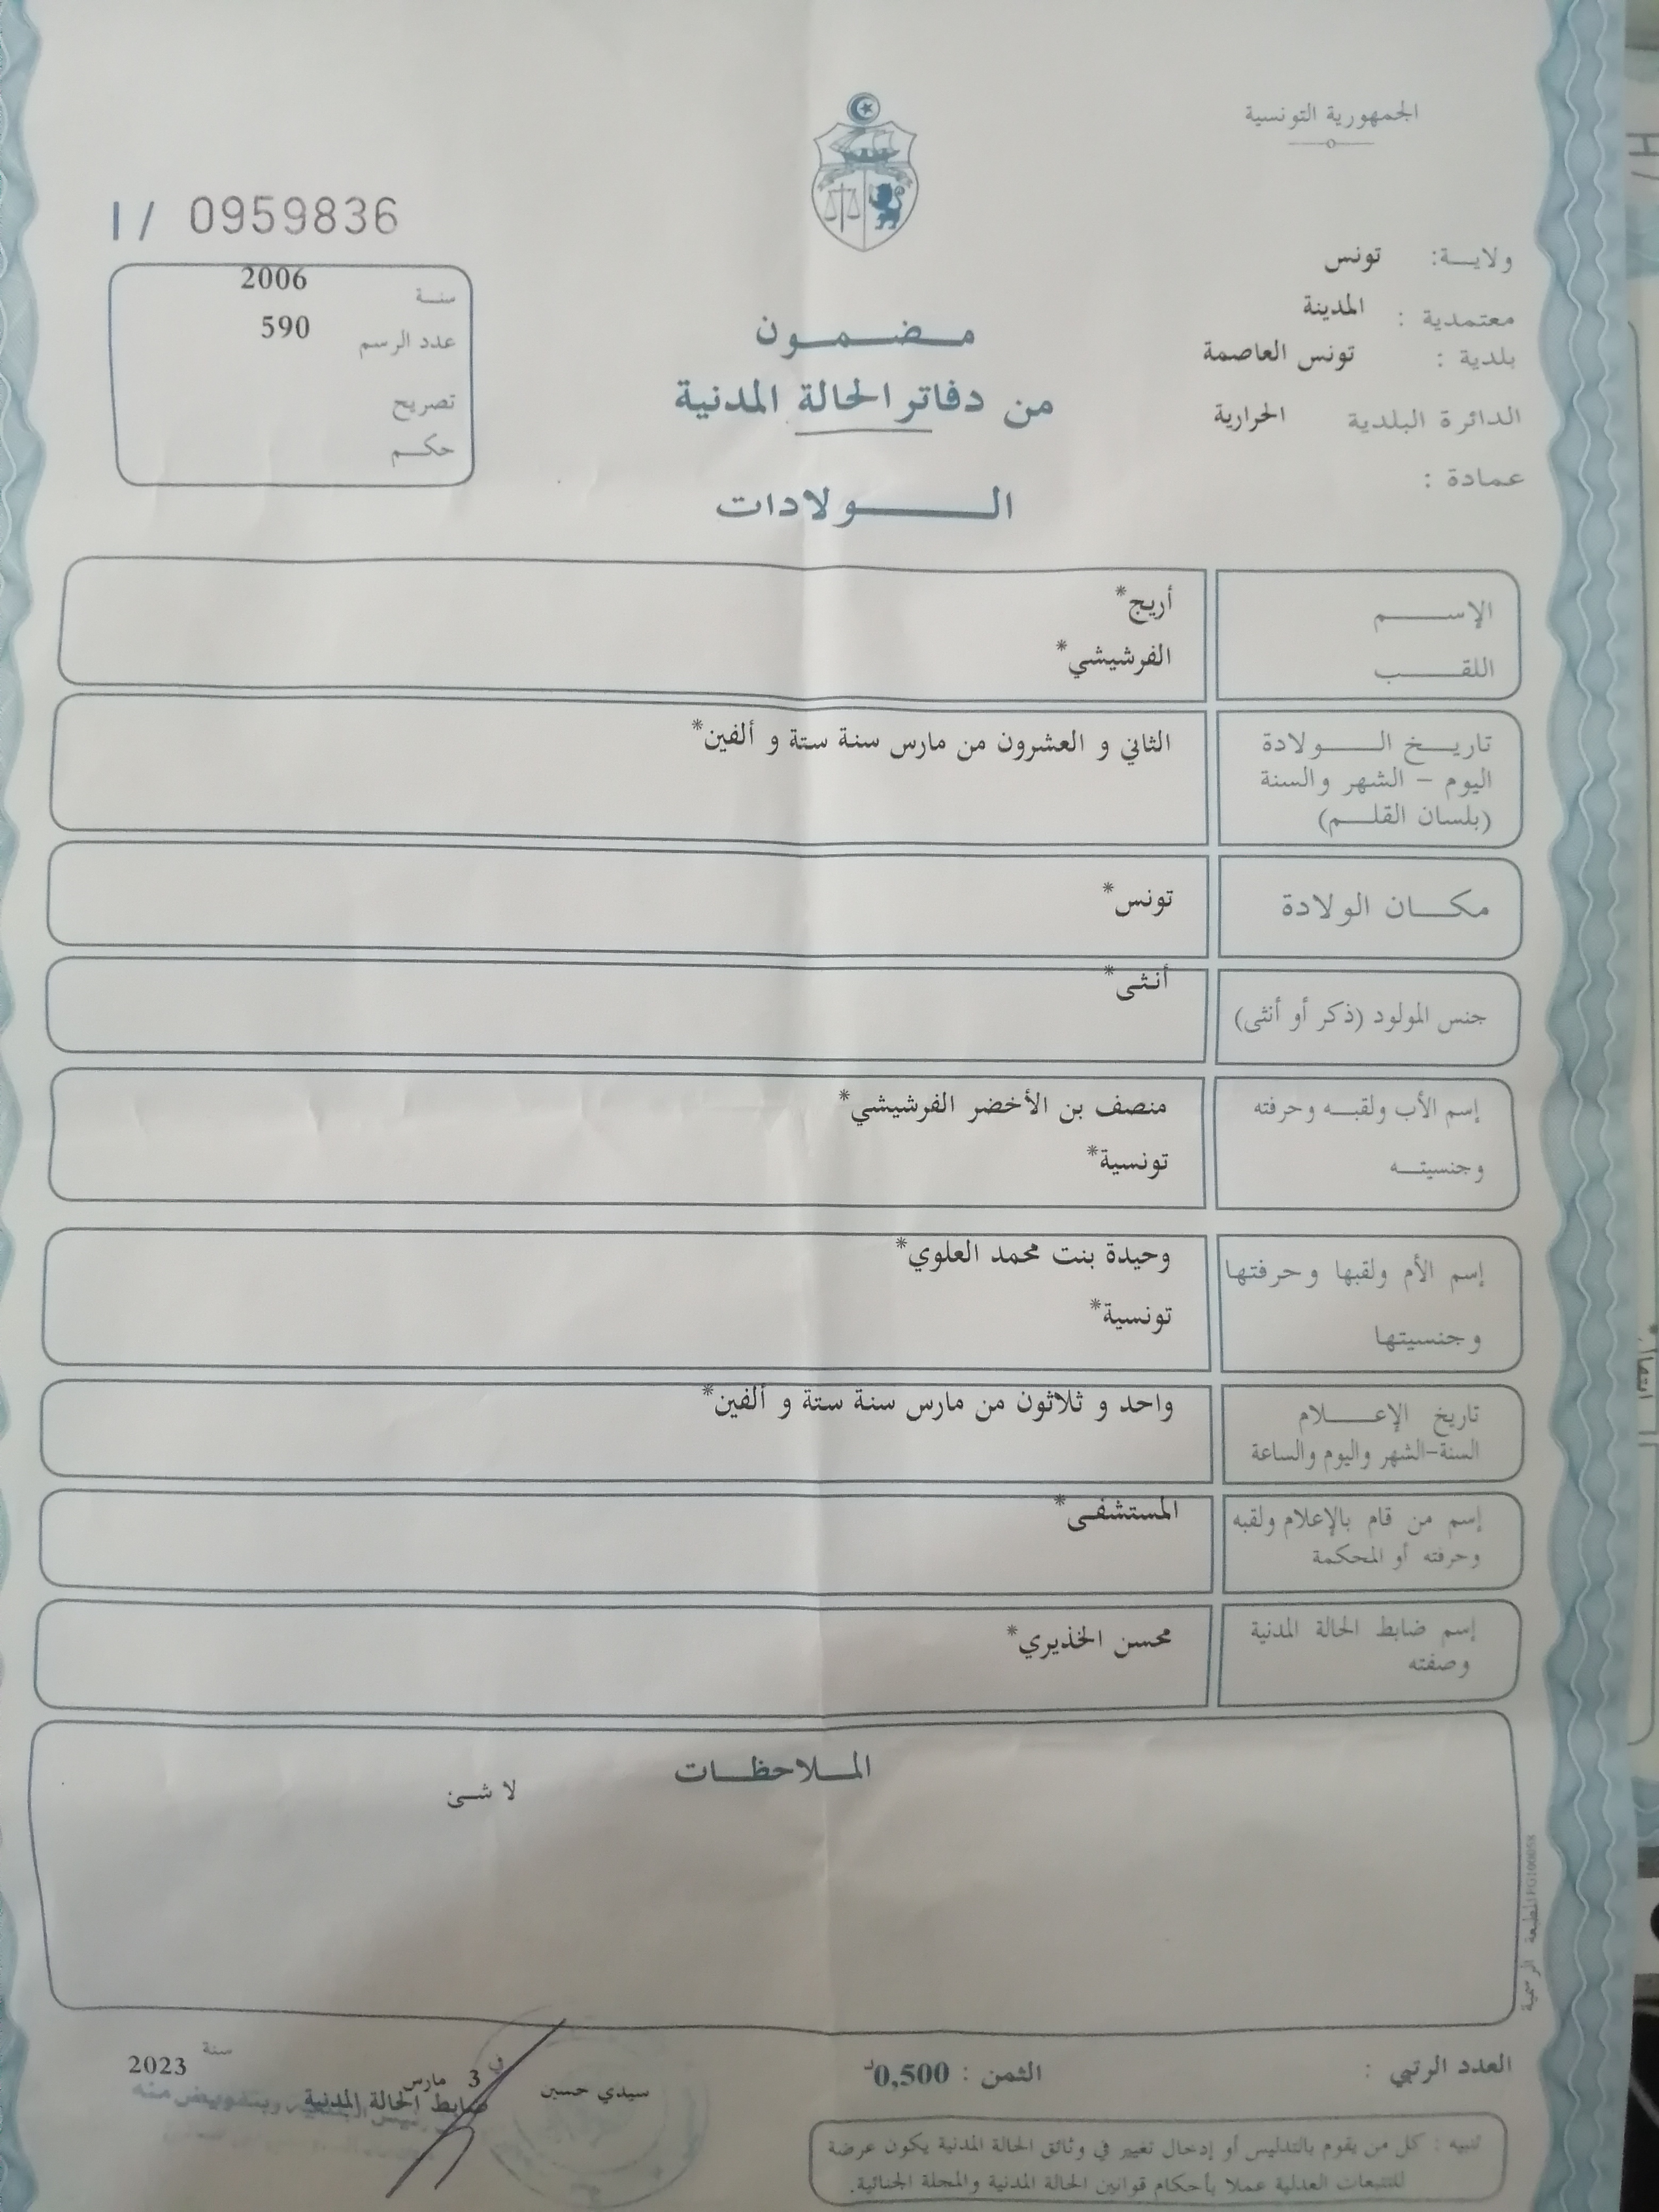 الجمهورية التونسية
ولايـــة: تونس
معتمدية : المدينة
بلدية : تونس العاصمة
الدائرة البلدية الحرارية
عمادة :
I / 0959836
سنـة 2006
عدد الرسم 590
تصريح
حكـم
مـضـمـون
من دفاتر الحالة المدنية
الـــولادات
الإســـم أريج*
اللقـــب الفرشيشي*
تاريـخ الـــولادة الثاني و العشرون من مارس سنة ستة و ألفين*
اليوم - الشهر والسنة
(بلسان القلـــم)
مكـــان الولادة تونس*
جنس المولود (ذكر أو أنثى) أنثى*
إسم الأب ولقبـه وحرفته منصف بن الأخضر الفرشيشي*
وجنسيتـــه تونسية*
إسم الأم ولقبها وحرفتها وحيدة بنت محمد العلوي*
وجنسيتها تونسية*
تاريخ الإعـــلام واحد و ثلاثون من مارس سنة ستة و ألفين*
السنة-الشهر واليوم والساعة
إسم من قام بالإعلام ولقبه المستشفى*
وحرفته أو المحكمة
إسم ضابط الحالة المدنية محسن الخذيري*
وصفته
المـلاحظـات
لا شـئ
المطبعة الرسمية
العدد الرتبي :
الثمن : 0,500د
سيدي حسين في 3 مارس سنة 2023
ضابط الحالة المدنية
تنبيه : كل من يقوم بالتدليس أو إدخال تغيير في وثائق الحالة المدنية يكون عرضة
للتتبعات العدلية عملا بأحكام قوانين الحالة المدنية والمجلة الجنائية.